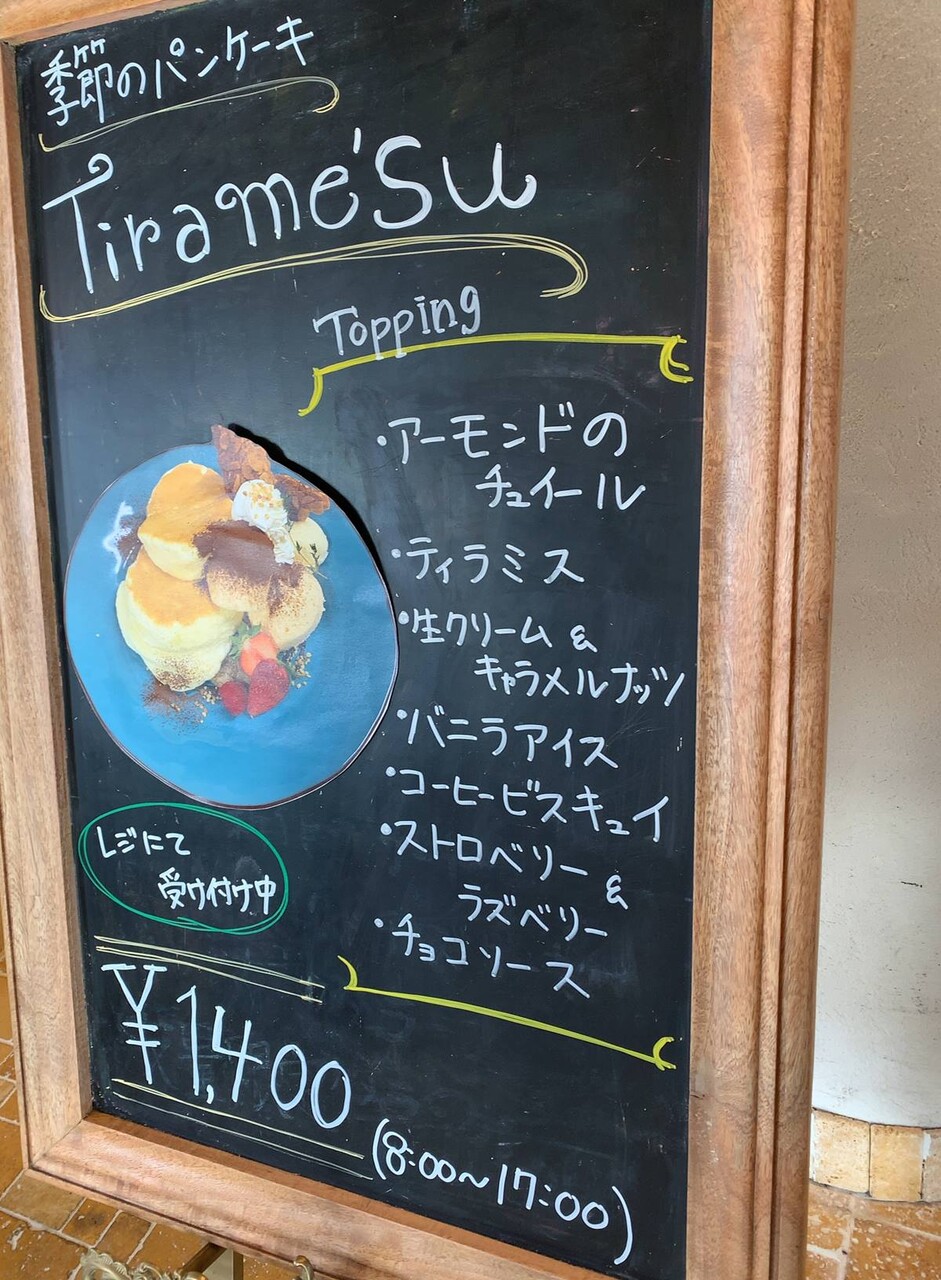 季節のパンケーキ
Tirame'su
Topping
・アーモンドの
チュイール
・ティラミス
・生クリーム &
キャラメルナッツ
・バニラアイス
・コーヒービスキュイ
・ストロベリー &
ラズベリー
・チョコソース
レジにて
受け付け中
¥1,400
(8:00〜17:00)